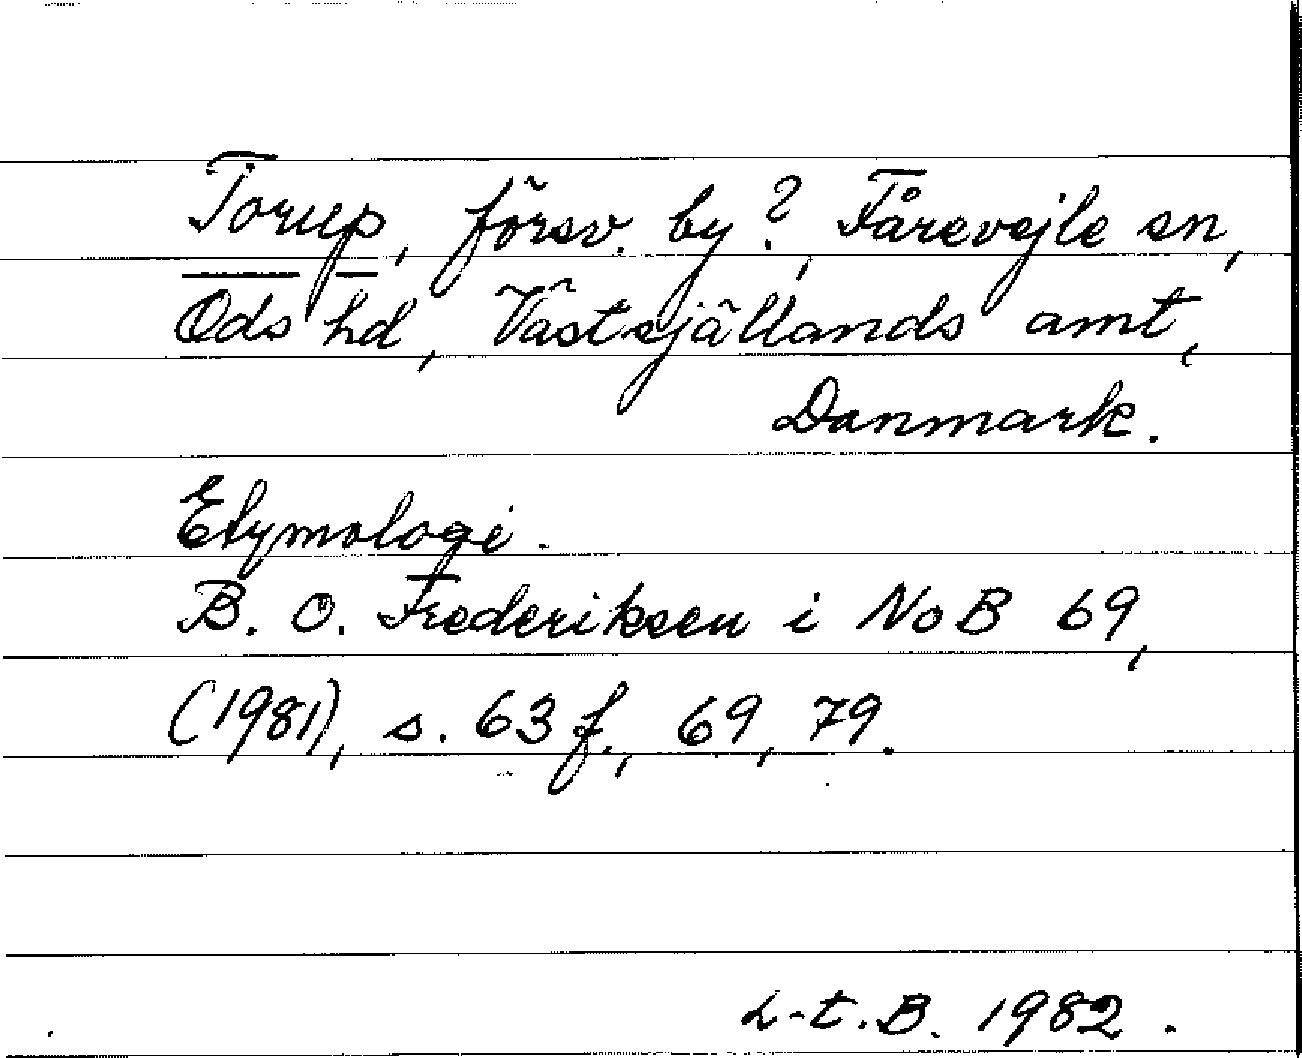 Torup, försv. by?, Fårevejle sn,
Ods hd, Västsjällands amt,
Danmark.
Etymologi.
B. O. Frederiksen i NoB 69,
(1981), s. 63 f., 69, 79.
L-t. B. 1982.